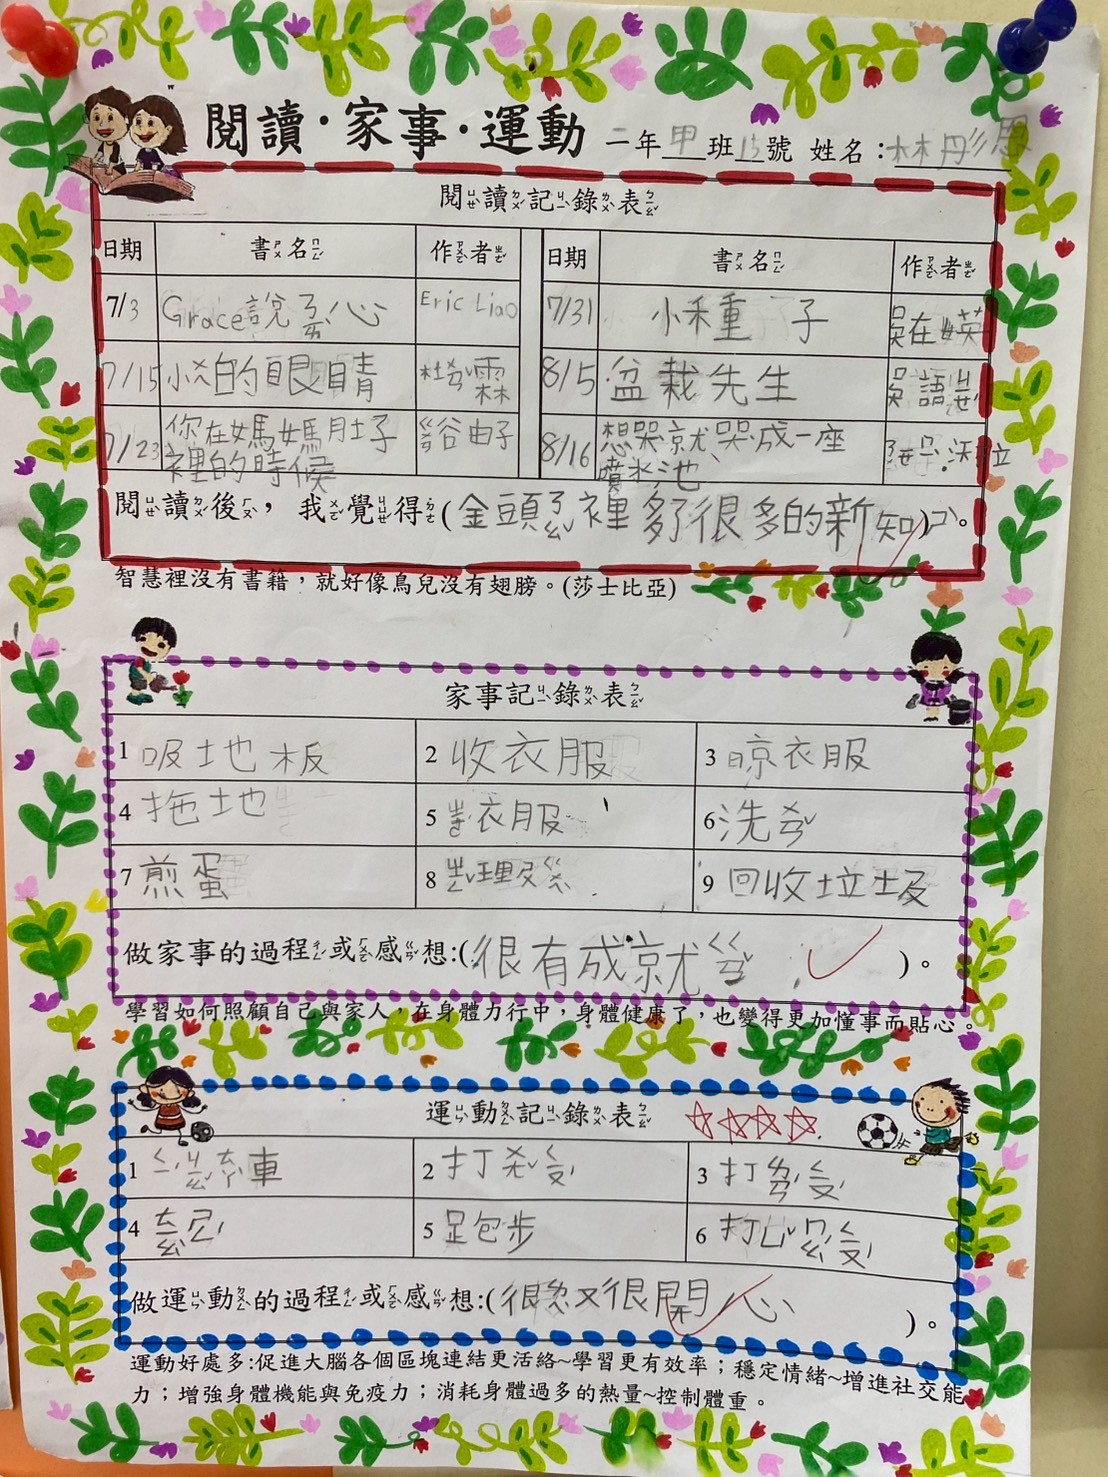 閱讀·家事·運動 二年甲班15號 姓名:林彤恩
閱讀記錄表
日期 書名 作者 日期 書名 作者
7/3 Grace說ㄎㄞ心 Eric Liao 7/31 小種子
7/15 的眼睛 霖 8/5 盆栽先生 吳語
7/23 你在媽媽肚子裡的時候 谷由子 8/16 想哭就哭成一座噴水池
閱讀後,我覺得(金頭ㄋㄠˇ裡多了很多的新知)。
智慧裡沒有書籍,就好像鳥兒沒有翅膀。(莎士比亞)
家事記錄表
1 吸地板 2 收衣服 3 晾衣服
4 拖地 5 ㄓㄜˊ衣服 6 洗ㄨㄢˇ
7 煎蛋 8 ㄓㄥˇ理 9 回收垃圾
做家事的過程或感想:(很有成就ㄍㄢˇ)。
學習如何照顧自己與家人,在身體力行中,身體健康了,也變得更加懂事而貼心。
運動記錄表
1 車 2 打 3 打ㄌㄢˊㄑㄧㄡˊ
4 ㄊㄧㄠˋ 5 跑步 6 打
做運動的過程或感想:(很又很開心)。
運動好處多:促進大腦各個區塊連結更活絡~學習更有效率;穩定情緒~增進社交能
力;增強身體機能與免疫力;消耗身體過多的熱量~控制體重。